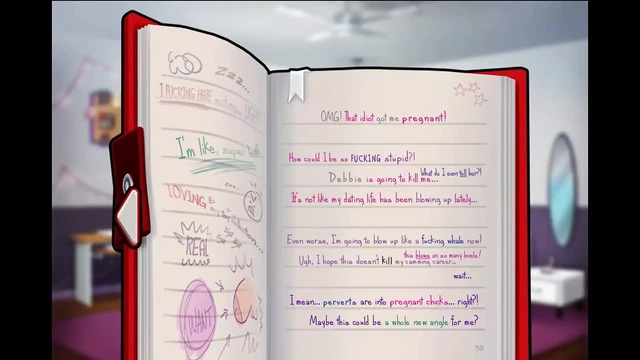 zzz...
I FUCKING HATE
I'm like,
LOVING
REAL
WANT
OMG! That idiot got me pregnant!
How could I be so FUCKING stupid?!
What do I even tell her?!
Debbie is going to kill me...
It's not like my dating life has been blowing up lately...
Even worse, I'm going to blow up like a fucking whale now!
this blows on so many levels!
Ugh, I hope this doesn't kill my camming career...
wait...
I mean... perverts are into pregnant chicks... right?!
Maybe this could be a whole new angle for me?
59